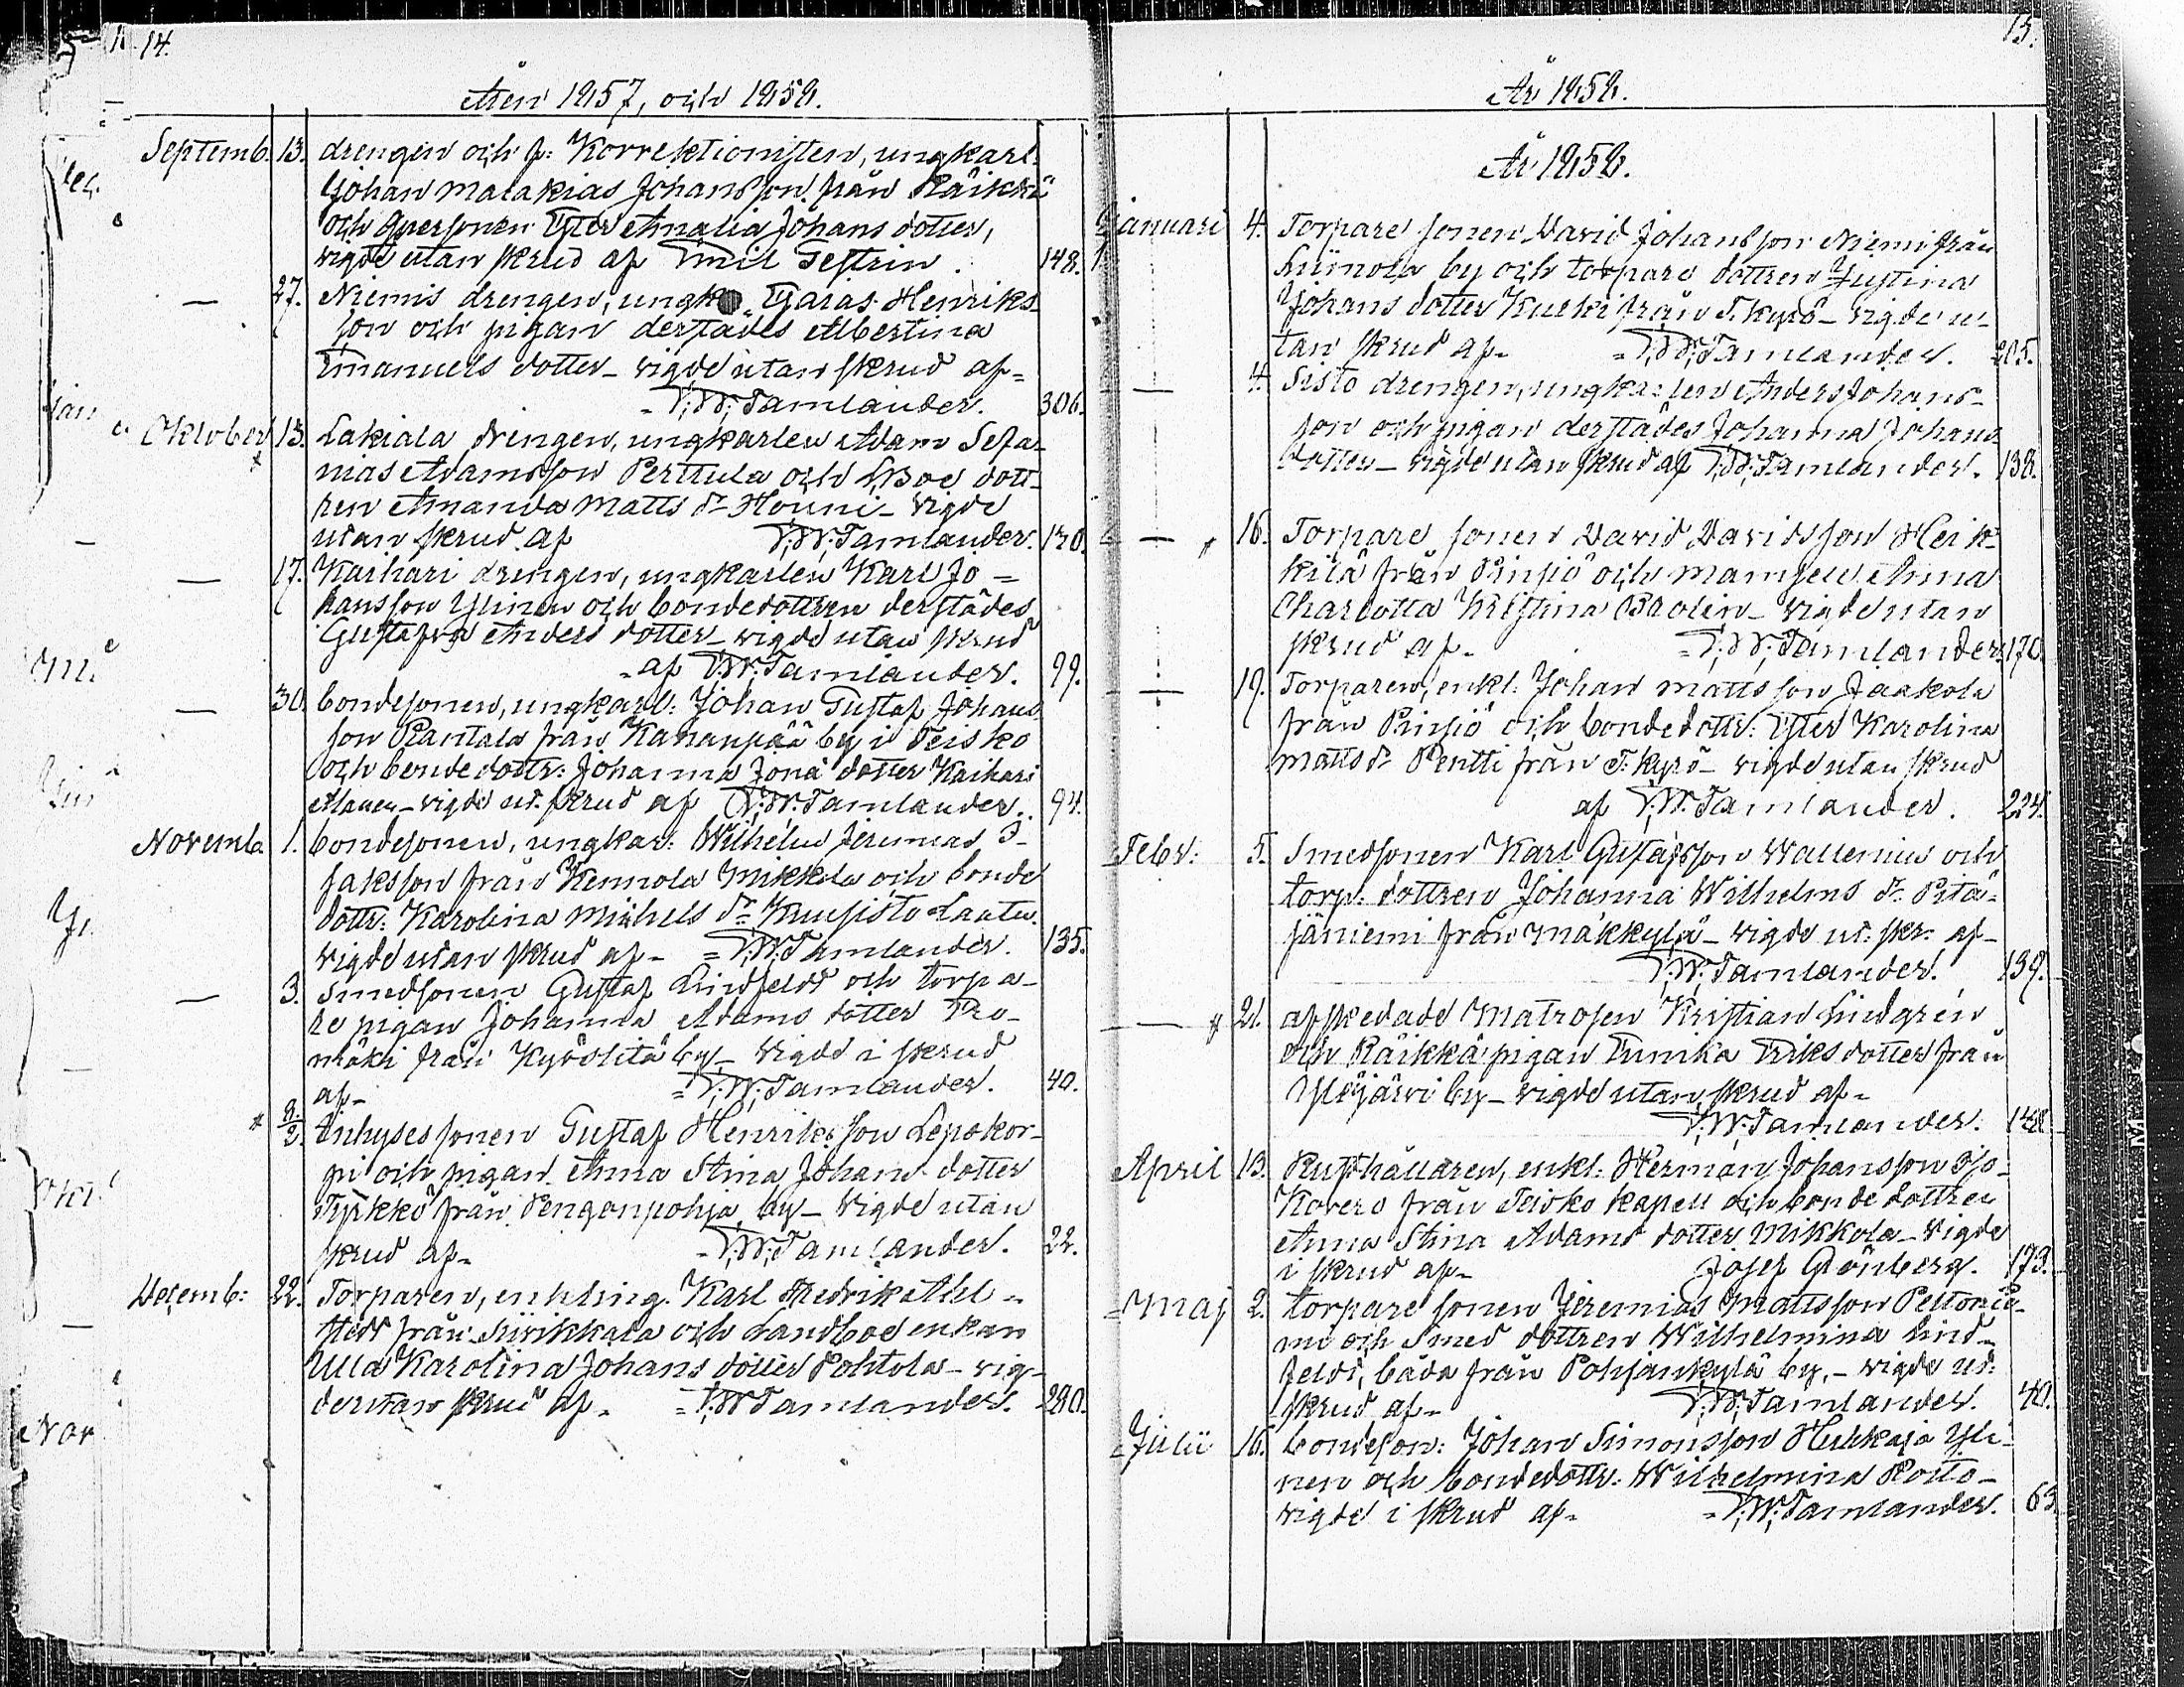 14.
Åren 1857, och 1858.
Septemb. 13. drengen och f: Korrektionisten, ungkarl.
Johan Malakias Johansson från Räikkä
och qpersonen Ester Amalia Johans dotter,
vigde utan skrud af Emil Gestrin. 148.
— 27. Niemis drengen, ungk Esaias Henriks-
son och pigan derstädes Albertina
Emanuels dotter - vigde utan skrud af=
=T.W.Tamlander. 306.
Oktober 13. Lakiala drengen, ungkarlen Adam Sefa-
nias Adamsson Perttula och LBoe dott-
ren Amanda Matts dr Houni - vigde
utan skrud af T.W.Tamlander. 120.
— 17. Kaihari drengen, ungkarlen Karl Jo=
hansson Ylinen och bondedottren derstädes
Gustafva Anders dotter - vigde utan skrud
-af T.W.Tamlander. 99.
— 30. bondesonen, ungkarl: Johan Gustaf Johans
son Rantala från Kananpää by i Teisko
och bonde dottr: Johanna Jona dotter Kaihari
Alanen - vigde ut. skrud af T.W.Tamlander. 94.
Novemb. 1. bondesonen, ungkar: Wilhelm Jeremias I-
saksson från Kennola Mikkola och bonde
dottr: Karolina Michels dr Kuusisto Lantu.
vigde utan skrud af- =T.W.Tamlander. 135.
— 3. Smedsonen Gustaf Lindfeldt och torpa-
re pigan Johanna Adams dotter
mäki från Kyöstilä by - vigde i skrud
af- =T.W.Tamlander. 40.
8/2. Inhysessonen Gustaf Henriksson Lepokor-
pi och pigan Anna Stina Johans dotter
Tyrkkö från Pengonpohja by - vigde utan
skrud af- -T.W.Tamlander. 22.
Decemb: 22. Torparen, enkling. Karl Fredrik Ahl-
stedt från Siivikkala och Landboe enkan
Ulla Karolina Johans dotter Pohtola - vig-
de utan skrud af- =T.W.Tamlander. 280.
15.
År 1858.
År 1858.
Januari 4. Torpare sonen David Johansson Niemi från
Liinola by och torpare dottren Justina
Johans dotter Kurki från T.kyrö - vigde u-
tan skrud af- =T.W.Tamlander. 205.
— 4. Sisto drengen, ungkarlen Anders Johans-
son och pigan derstädes Johanna Johans
dotter - vigde utan skrud af T.W.Tamlander. 138.
— 16. Torpare sonen David Davidsson Heik-
kilä från Pinsiö och mamsell Anna
Charlotta Kristina Brolin - vigde utan
skrud af- =T.W.Tamlander. 170.
— 19. Torparen, enkl: Johan Mattsson Jaakola
från Pinsiö och bonde dottr: Ester Karolina
Matts dr Pentti från T.kyrö - vigde utan skrud
af T.W.Tamlander. 224.
Febr: 5. Smedsonen Karl Gustafsson Wallenius och
torp: dottren Johanna Wilhelms dr Pitä-
jäniemi från Mäkkylä - vigde ut: skr: af-
T.W.Tamlander. 139.
— 21. afskedade Matrosen Kristian Lindgren
och Räikkä pigan Eurika Eriks dotter från
Ylöjärvi by - vigde utan skrud af-
T.W.Tamlander. 148
April 13. Rusthållaren, enkl: Herman Johansson Iso-
Kovero från Teisko kapell och bonde dottren
Anna Stina Adams dotter Mikkola - vigde
i skrud af- Josef Grönberg. 173.
Maj 2. torpare sonen Jeremias Mattsson Peltonie-
mi och smed dottren Wilhelmina Lind-
feldt, båda från Pohjankylä by, - vigde ut:
skrud af- T.W.Tamlander. 40.
Julii 16. bondeson: Johan Simonsson Huhkaja Yli-
nen och bondedottr: Wilhelmina Roito-
vigde i skrud af- =T.W.Tamlander. 63.